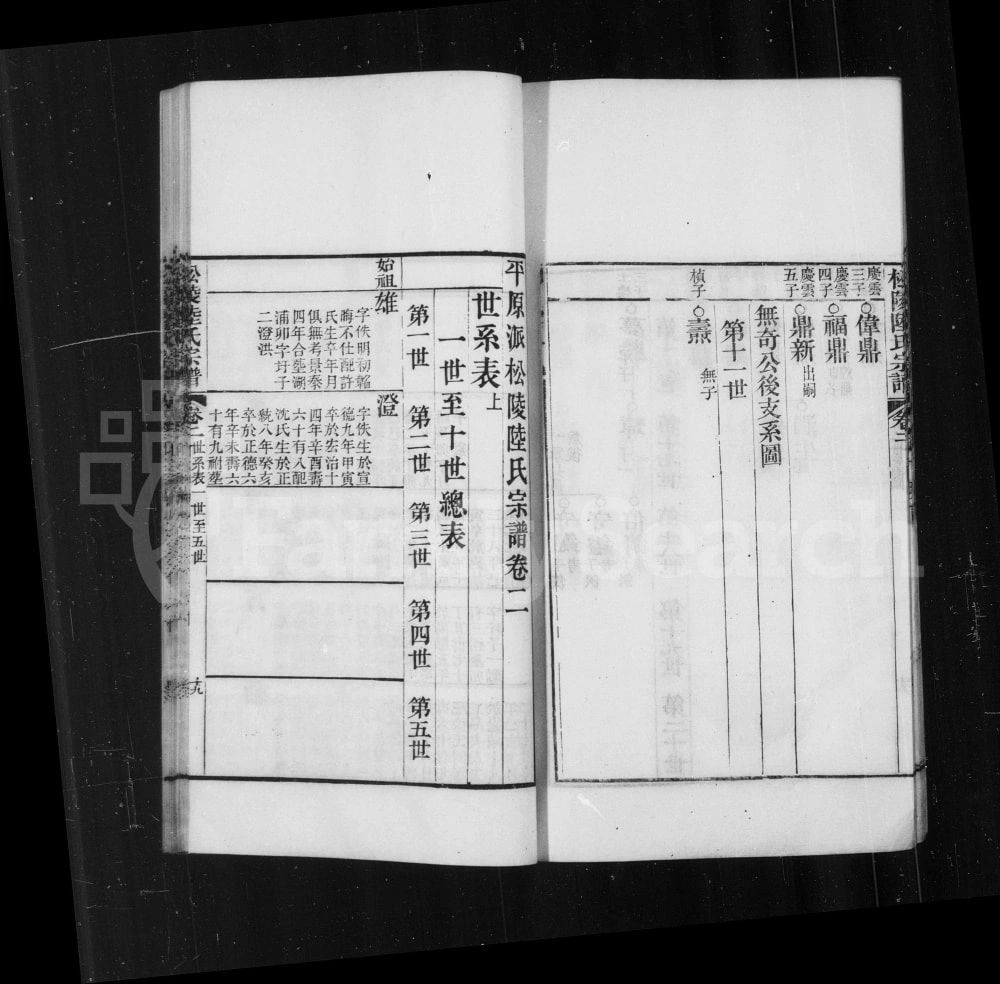 松陵陸氏宗譜
卷二
慶雲三子
偉鼎
慶雲四子
福鼎
慶雲五子
鼎新 出嗣
無奇公後支系圖
第十一世
楨子
燾 無子
平原派松陵陸氏宗譜卷二
世系表上
一世至十世總表
第一世
第二世
第三世
第四世
第五世
始祖
雄
字佚明初韜
晦不仕配許
氏生卒年月
俱無考景泰
四年合塟湖
浦卯字圩子
二澄洪
澄
字佚生於宣
德九年甲寅
卒於宏治十
四年辛酉壽
六十有八配
沈氏生於正
統八年癸亥
卒於正德六
年辛未壽六
十有九祔塟
松陵陸氏宗譜
卷二世系表 一世至五世
十九